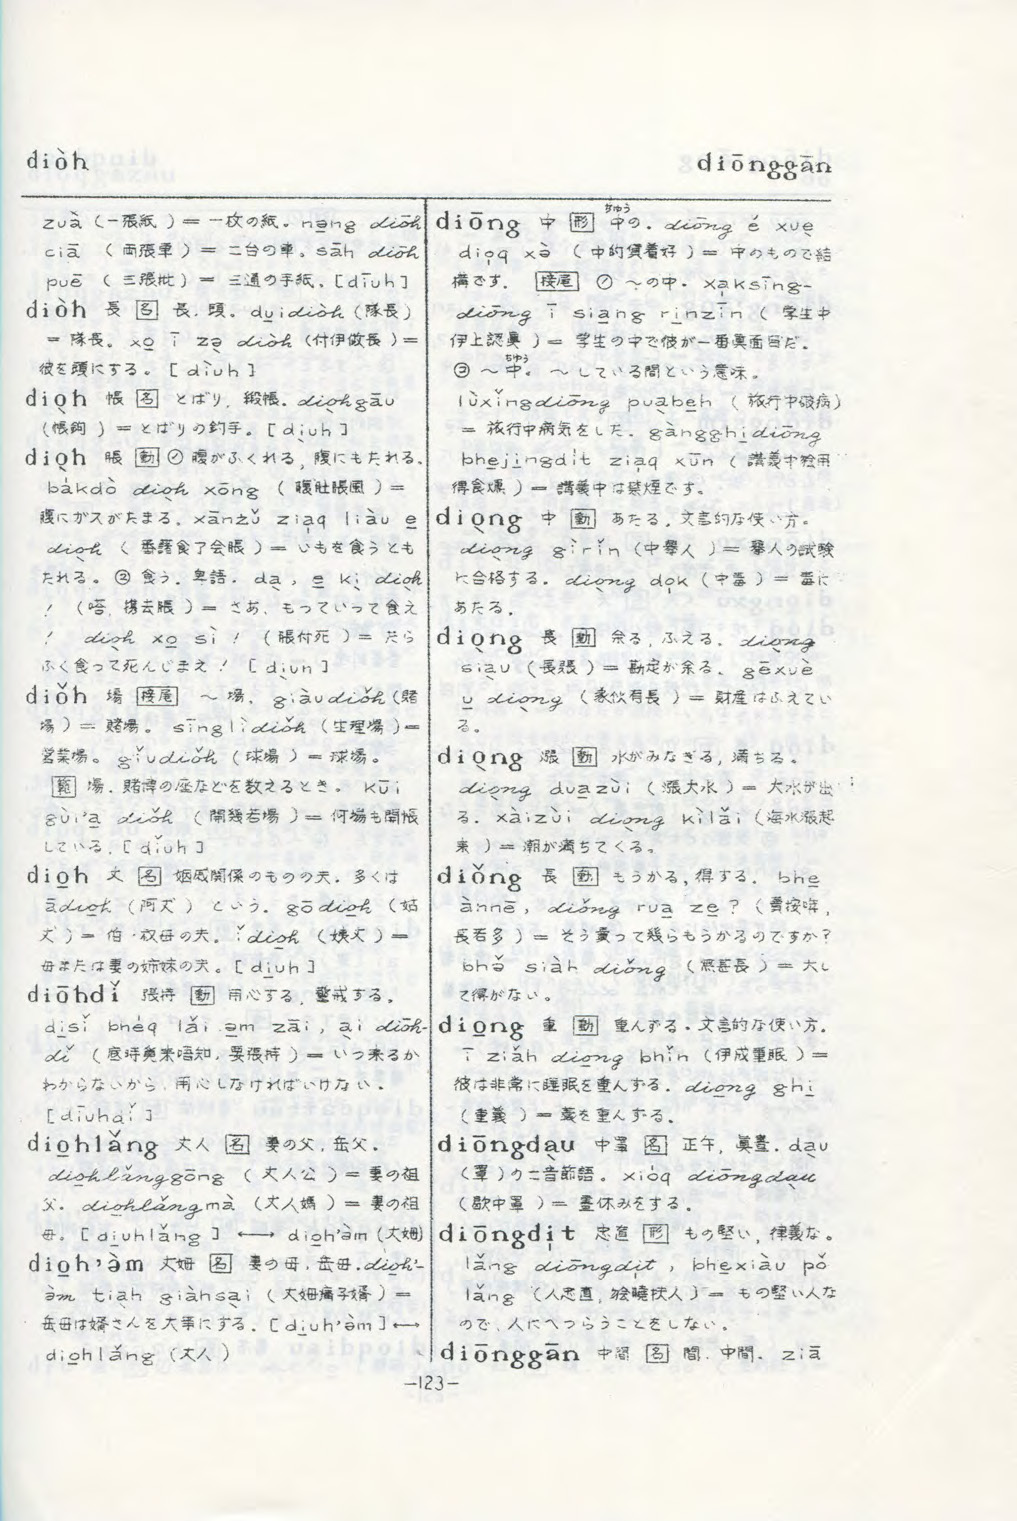 diòh
diōnggān
zuà (一張紙) = 一枚の紙。nəng diōh
ciā (両張車) = 二台の車。sāh diōh
puē (三張批) = 三通の手紙。[dīuh]
diòh 長 [名] 長. 頭。duidiòh (隊長)
= 隊長。xo ī zə diòh (付伊做長) =
彼を頭にする。[dìuh]
diọh 帳 [名] とばり, 緞帳. diọhgāu
(帳鉤) = とばりの釣手。[diụh]
diọh 脹 [動] ① 腹がふくれる, 腹にもたれる.
bákdò diọh xōng (腹肚脹風) =
腹にガスがたまる. xānzǔ ziaq liàu e
diọh (番藷食了会脹) = いもを食うとも
たれる。② 食う. 卑語. da, e ki diọh
! (嗒, 携去脹) = さあ, もっていって食え
! diọh xo sì! (脹付死) = たら
ふく食って死んじまえ! [diụh]
diǒh 場 [接尾] ～場. giàudiǒh (賭
場) = 賭場。sīnglìdiǒh (生理場) =
営業場。giǔdiǒh (球場) = 球場。
場. 賭博の座などを数えるとき。Kūi
gùi'a diǒh (開幾若場) = 何場も開帳
している. [diǔh]
dio̲h 丈 [名] 姻戚関係のものの夫. 多くは
ādio̲h (阿丈) という. gōdio̲h (姑
丈) = 伯・叔母の夫。ǐdio̲h (姨丈) =
母または妻の姉妹の夫。[diu̲h]
diōhdǐ 張持 [動] 用心する, 警戒する.
disǐ bhéq lǎi əm zāi, ai diōh-
dǐ (底時要来唔知, 要張持) = いつ来るか
わからないから, 用心しなければいけない.
[dīuhdǐ]
dio̲hlǎng 丈人 [名] 妻の父, 岳父.
dio̲hlǎnggōng (丈人公) = 妻の祖
父. dio̲hlǎngmà (丈人媽) = 妻の祖
母。[diu̲hlǎng] ←→ dio̲h'àm (丈姆)
dio̲h'àm 丈姆 [名] 妻の母, 岳母. dio̲h'-
àm tiah giàhsai (丈姆痛子婿) =
岳母は婿さんを大事にする. [diu̲h'àm] ←→
dio̲hlǎng (丈人)
diōng 中 [形] 中(ちゅう)の. diōng é xue
dioq xə̀ (中的貨着好) = 中のもので結
構です. [接尾] ① ～の中. xaksīng-
diōng ī siang rinzīn (学生中
伊上認真) = 学生の中で彼が一番真面目だ.
② ～中(ちゅう)。～している間という意味。
lǔxíngdiōng puabeh (旅行中破病)
= 旅行中病気をした. gàngghidiōng
bhejingdít ziaq xūn (講義中𣍐用
得食煙) = 講義中は禁煙です。
diọng 中 [動] あたる, 文言的な使い方。
diọng gìrǐn (中舉人) = 舉人の試験
に合格する. diọng dok (中毒) = 毒に
あたる.
diọng 長 [動] 余る, ふえる. diọng
siau (長賬) = 勘定が余る. gēxuè
u diọng (家伙有長) = 財産はふえてい
る。
diọng 漲 [動] 水がみなぎる, 満ちる。
diọng duazùi (漲大水) = 大水が出
る. xàizùi diọng kìlǎi (海水漲起
来) = 潮が満ちてくる。
diǒng 長 [動] もうかる, 得する. bhe
ànnē, diǒng rua ze? (賣按哖,
長若多) = そう賣って幾らもうかるのですか?
bhə̌ siàh diǒng (無甚長) = 大し
て得がない。
dio̲ng 重 [動] 重んずる. 文言的な使い方.
ī ziǎh dio̲ng bhǐn (伊成重眠) =
彼は非常に睡眠を重んずる. dio̲ng ghi
(重義) = 義を重んずる.
diōngdau 中罩 [名] 正午, 真昼. dau
(罩) の二音節語。xióq diōngdau
(歇中罩) = 昼休みをする.
diōngdit 忠直 [形] もの堅い, 律義な。
lǎng diōngdit, bhexiàu pǒ
lǎng (人忠直, 𣍐曉扶人) = もの堅い人な
ので, 人にへつらうことをしない.
diōnggān 中間 [名] 間. 中間. ziā
-123-